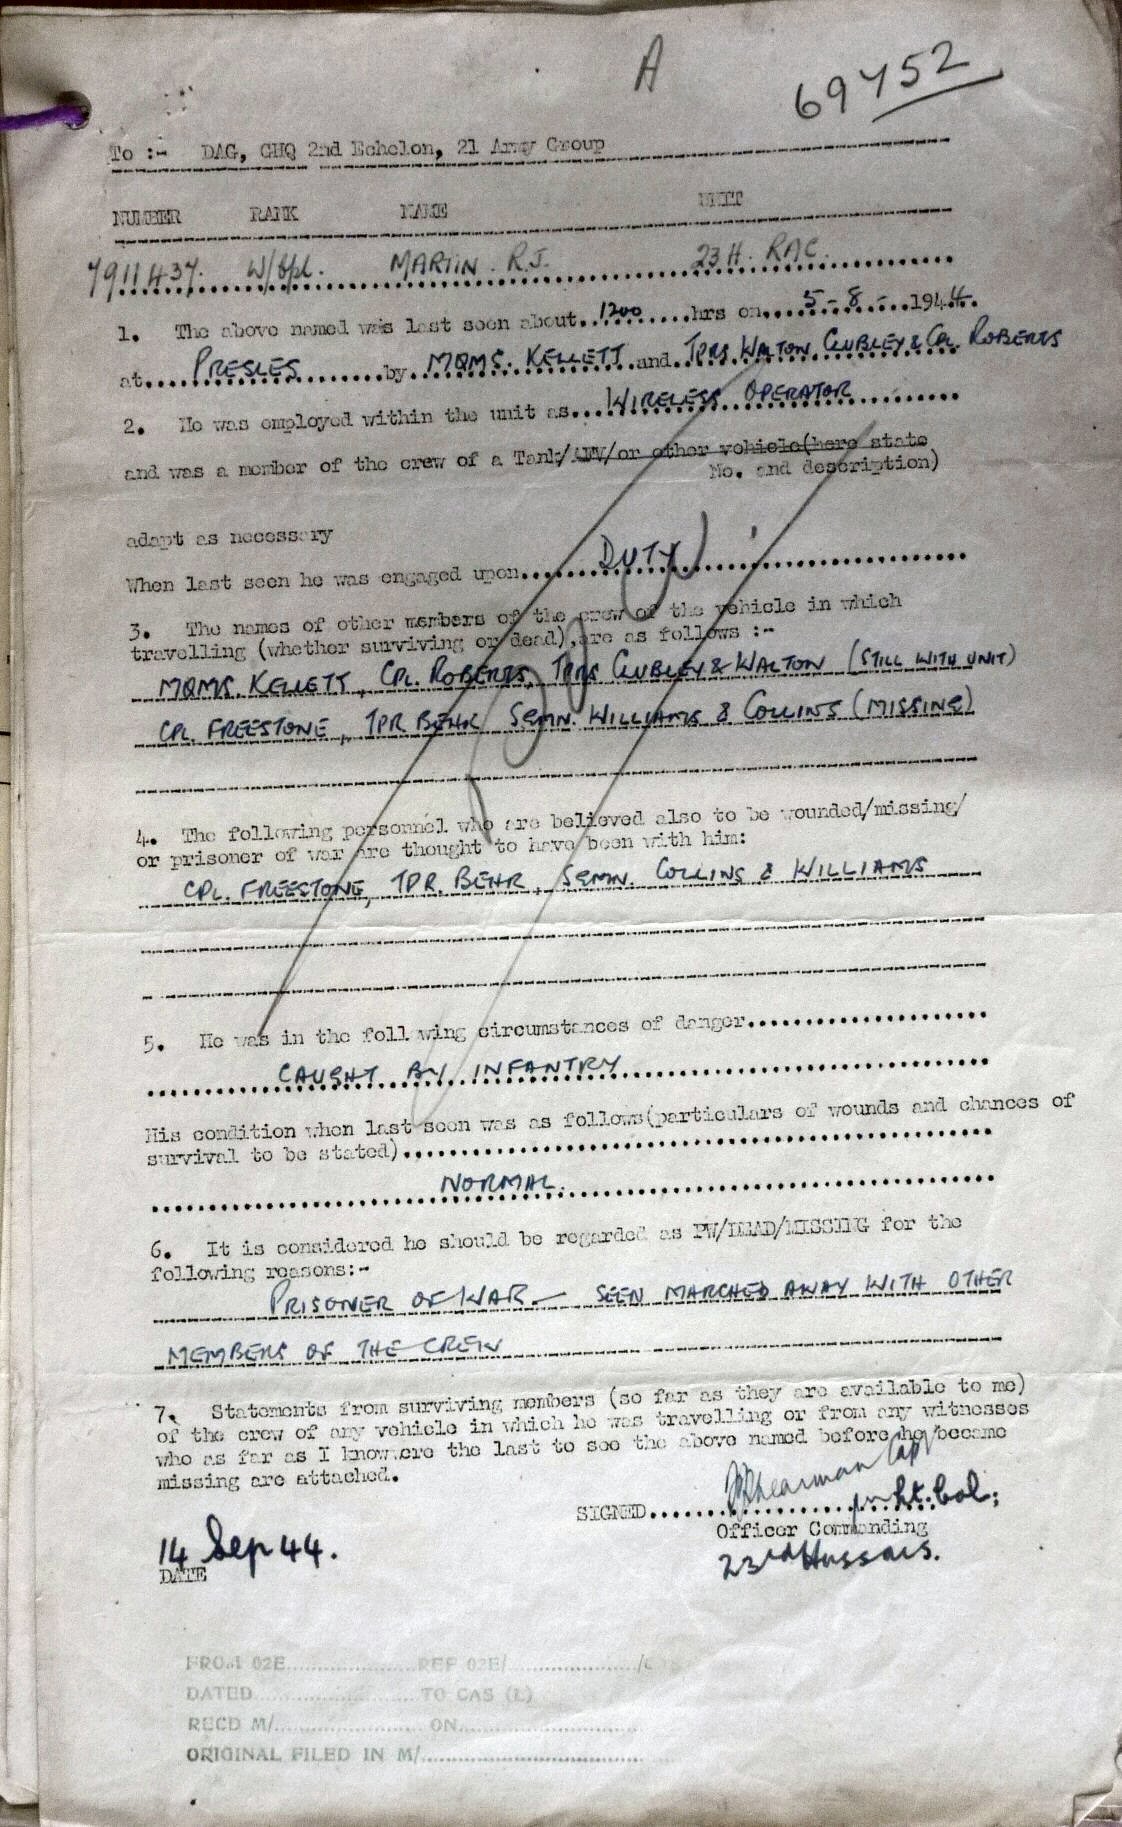 A
69452
To :- DAG, GHQ 2nd Echelon, 21 Army Group
NUMBER RANK NAME UNIT
7911437. W/Cpl. MARTIN. R.J. 23 H. RAC.
1. The above named was last seen about..1200.....hrs on....5-8-..1944.
at....PRESLES..........by..MQMS. KELLETT..and..TPRS WALTON CLUBLEY & CPL. ROBERTS
2. He was employed within the unit as...WIRELESS OPERATOR..........
and was a member of the crew of a Tank/AFV/or other vehicle(here state
No. and description)
adapt as necessary
When last seen he was engaged upon.......DUTY....................
3. The names of other members of the crew of the vehicle in which
travelling (whether surviving or dead),are as follows :-
MQMS. KELLETT, CPL. ROBERTS, TPRS CLUBLEY & WALTON (STILL WITH UNIT)
CPL. FREESTONE, TPR BEHR, SGMN. WILLIAMS & COLLINS (MISSING)
4. The following personnel who are believed also to be wounded/missing/
or prisoner of war are thought to have been with him:
CPL. FREESTONE, TPR. BEHR, SGMN. COLLINS & WILLIAMS
5. He was in the foll wing circumstances of danger......................
CAUGHT BY INFANTRY
His condition when last seen was as follows(particulars of wounds and chances of
survival to be stated)..........................................
NORMAL.
6. It is considered he should be regarded as PW/DEAD/MISSING for the
following reasons:-
PRISONER OF WAR – SEEN MARCHED AWAY WITH OTHER
MEMBERS OF THE CREW
7. Statements from surviving members (so far as they are available to me)
of the crew of any vehicle in which he was travelling or from any witnesses
who as far as I know,are the last to see the above named before he became
missing are attached.
SIGNED.......Shearman Capt
Lt. Col;
Officer Commanding
23rd Hussars.
14 Sep 44.
DATE
FROM 02E....................REF 02E/...................../
DATED.........................TO CAS (L)
RECD M/.......................ON..............................
ORIGINAL FILED IN M/......................................